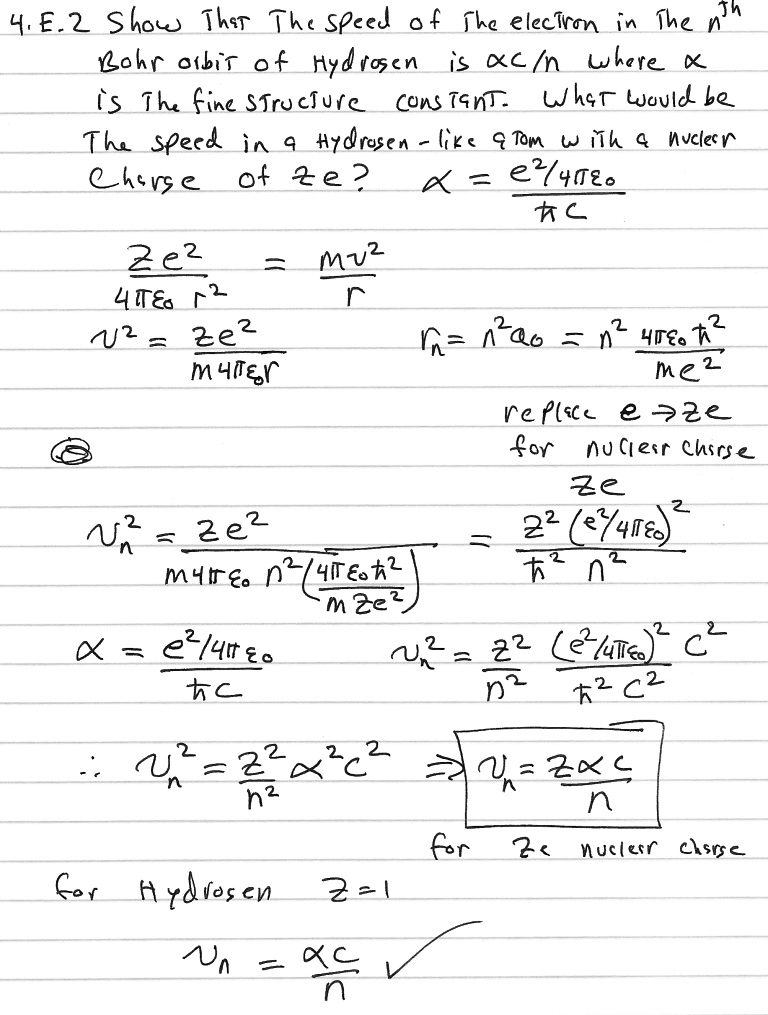 4.E.2 Show That The speed of The electron in The nth
Bohr orbit of Hydrogen is αc/n where α
is The fine structure constant. What would be
The speed in a Hydrogen-like atom with a nuclear
Charge of Ze? α = (e²/4πε₀)/(ħc)
Ze²/(4πε₀ r²) = mv²/r
v² = Ze²/(m4πε₀r) rₙ = n²a₀ = n² 4πε₀ħ²/(me²)
replace e → Ze
for nuclear charge
Ze
vₙ² = Ze²/(m4πε₀ n²(4πε₀ħ²/(mZe²))) = Z²(e²/4πε₀)²/(ħ² n²)
α = (e²/4πε₀)/(ħc) vₙ² = Z²/n² (e²/4πε₀)² c²/(ħ² c²)
∴ vₙ² = Z²/n² α²c² ⇒ vₙ = Zαc/n
for Ze nuclear charge
for Hydrogen Z=1
vₙ = αc/n ✓